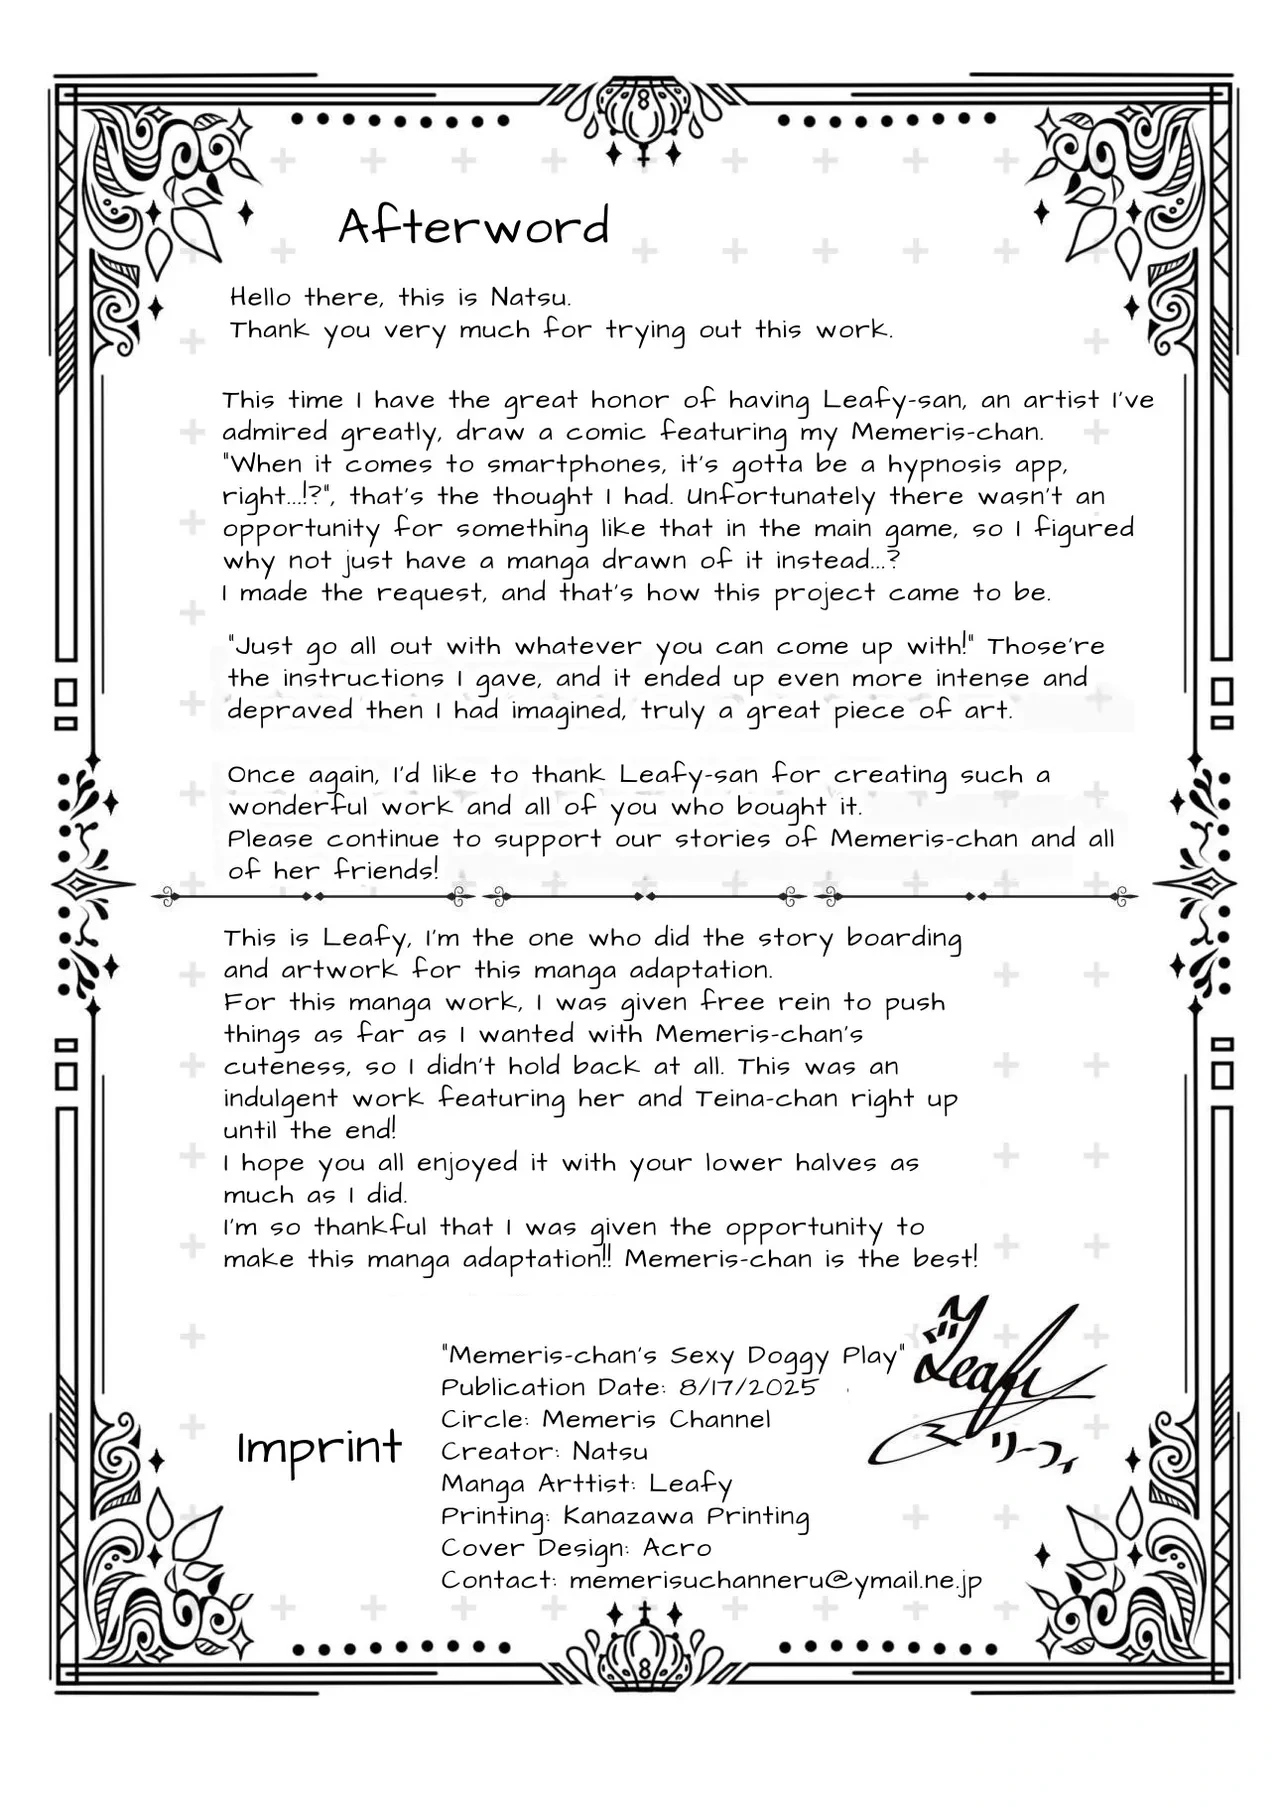 Afterword
Hello there, this is Natsu.
Thank you very much for trying out this work.
This time I have the great honor of having Leafy-san, an artist I've
admired greatly, draw a comic featuring my Memeris-chan.
"When it comes to smartphones, it's gotta be a hypnosis app,
right...!?", that's the thought I had. Unfortunately there wasn't an
opportunity for something like that in the main game, so I figured
why not just have a manga drawn of it instead...?
I made the request, and that's how this project came to be.
"Just go all out with whatever you can come up with!" Those're
the instructions I gave, and it ended up even more intense and
depraved then I had imagined, truly a great piece of art.
Once again, I'd like to thank Leafy-san for creating such a
wonderful work and all of you who bought it.
Please continue to support our stories of Memeris-chan and all
of her friends!
This is Leafy, I'm the one who did the story boarding
and artwork for this manga adaptation.
For this manga work, I was given free rein to push
things as far as I wanted with Memeris-chan's
cuteness, so I didn't hold back at all. This was an
indulgent work featuring her and Teina-chan right up
until the end!
I hope you all enjoyed it with your lower halves as
much as I did.
I'm so thankful that I was given the opportunity to
make this manga adaptation!! Memeris-chan is the best!
Imprint
"Memeris-chan's Sexy Doggy Play"
Publication Date: 8/17/2025
Circle: Memeris Channel
Creator: Natsu
Manga Arttist: Leafy
Printing: Kanazawa Printing
Cover Design: Acro
Contact: memerisuchanneru@ymail.ne.jp
Leafy
リーフィ